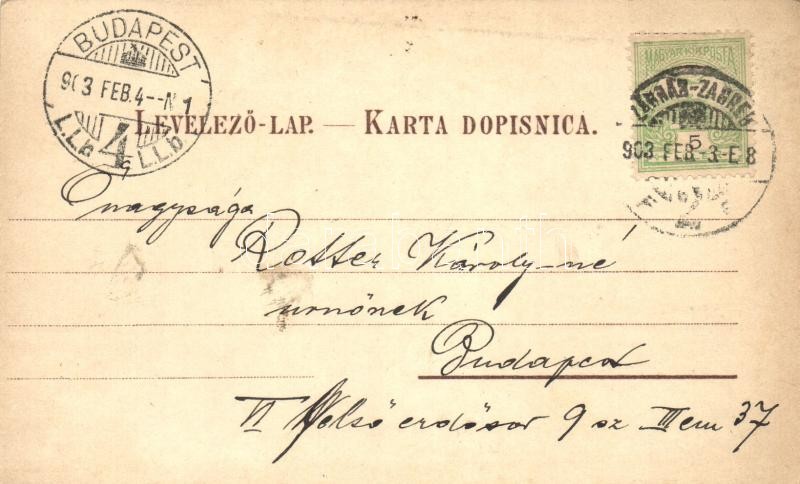 BUDAPEST
903 FEB. 4--N 1
4
L.L.b L.L.b
MAGYAR KIR. POSTA
ZÁGRÁB-ZAGREB
5
903 FEB -3-E 8
LEVELEZŐ-LAP. — KARTA DOPISNICA.
Őnagysága
Rotter Károly-né
urnőnek
Budapest
VI Külső erdősor 9 sz III em 37